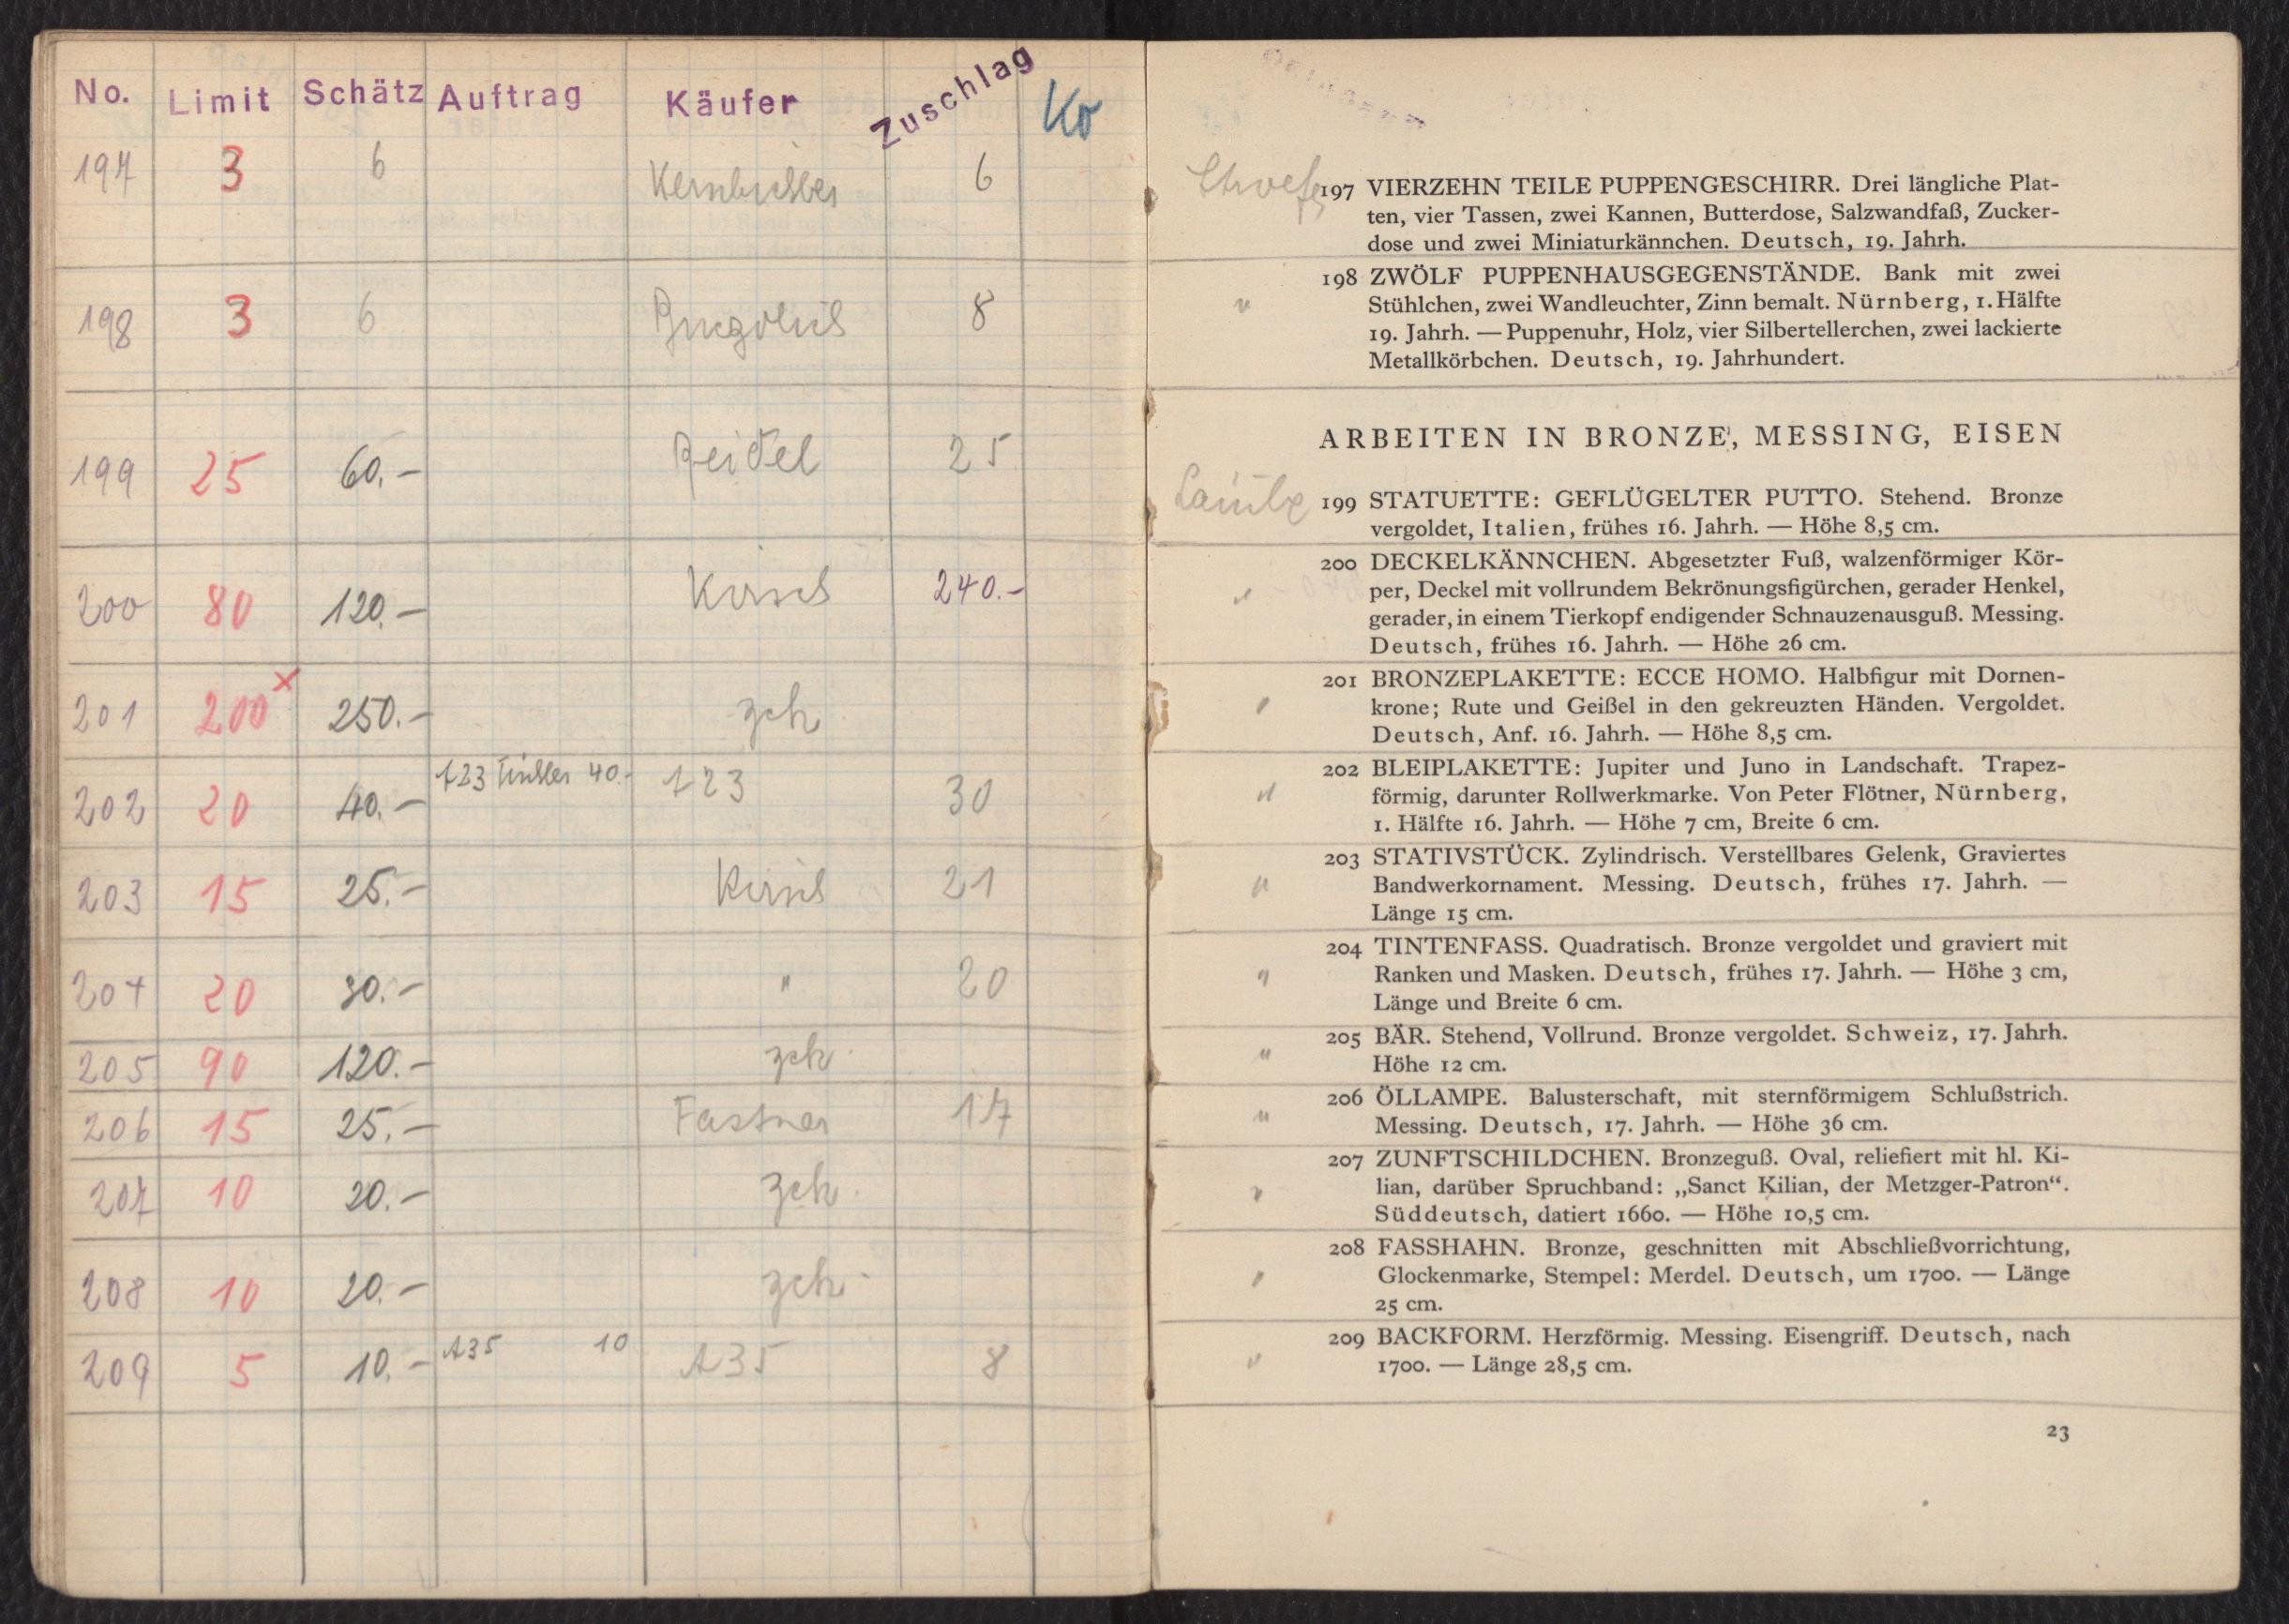 No. Limit Schätz Auftrag Käufer Zuschlag Ko
197 3 6 6
198 3 6 8
199 25 60.- 25
200 80 120.- Kirsch 240.-
201 200 x 250.- zck
202 20 40.- 123 Tischler 40.- 123 30
203 15 25.- Kirsch 21
204 20 30.- " 20
205 90 120.- zck
206 15 25.- Fastner 17
207 10 20.- zck
208 10 20.- zck
209 5 10.- A35 10 A35 8
197 VIERZEHN TEILE PUPPENGESCHIRR. Drei längliche Plat-
ten, vier Tassen, zwei Kannen, Butterdose, Salzwandfaß, Zucker-
dose und zwei Miniaturkännchen. Deutsch, 19. Jahrh.
" 198 ZWÖLF PUPPENHAUSGEGENSTÄNDE. Bank mit zwei
Stühlchen, zwei Wandleuchter, Zinn bemalt. Nürnberg, 1. Hälfte
19. Jahrh. — Puppenuhr, Holz, vier Silbertellerchen, zwei lackierte
Metallkörbchen. Deutsch, 19. Jahrhundert.
ARBEITEN IN BRONZE, MESSING, EISEN
199 STATUETTE: GEFLÜGELTER PUTTO. Stehend. Bronze
vergoldet, Italien, frühes 16. Jahrh. — Höhe 8,5 cm.
200 DECKELKÄNNCHEN. Abgesetzter Fuß, walzenförmiger Kör-
" per, Deckel mit vollrundem Bekrönungsfigürchen, gerader Henkel,
gerader, in einem Tierkopf endigender Schnauzenausguß. Messing.
Deutsch, frühes 16. Jahrh. — Höhe 26 cm.
201 BRONZEPLAKETTE: ECCE HOMO. Halbfigur mit Dornen-
" krone; Rute und Geißel in den gekreuzten Händen. Vergoldet.
Deutsch, Anf. 16. Jahrh. — Höhe 8,5 cm.
202 BLEIPLAKETTE: Jupiter und Juno in Landschaft. Trapez-
" förmig, darunter Rollwerkmarke. Von Peter Flötner, Nürnberg,
1. Hälfte 16. Jahrh. — Höhe 7 cm, Breite 6 cm.
203 STATIVSTÜCK. Zylindrisch. Verstellbares Gelenk, Graviertes
" Bandwerkornament. Messing. Deutsch, frühes 17. Jahrh. —
Länge 15 cm.
204 TINTENFASS. Quadratisch. Bronze vergoldet und graviert mit
" Ranken und Masken. Deutsch, frühes 17. Jahrh. — Höhe 3 cm,
Länge und Breite 6 cm.
205 BÄR. Stehend, Vollrund. Bronze vergoldet. Schweiz, 17. Jahrh.
" Höhe 12 cm.
206 ÖLLAMPE. Balusterschaft, mit sternförmigem Schlußstrich.
" Messing. Deutsch, 17. Jahrh. — Höhe 36 cm.
207 ZUNFTSCHILDCHEN. Bronzeguß. Oval, reliefiert mit hl. Ki-
" lian, darüber Spruchband: „Sanct Kilian, der Metzger-Patron“.
Süddeutsch, datiert 1660. — Höhe 10,5 cm.
208 FASSHAHN. Bronze, geschnitten mit Abschließvorrichtung,
" Glockenmarke, Stempel: Merdel. Deutsch, um 1700. — Länge
25 cm.
209 BACKFORM. Herzförmig. Messing. Eisengriff. Deutsch, nach
" 1700. — Länge 28,5 cm.
23